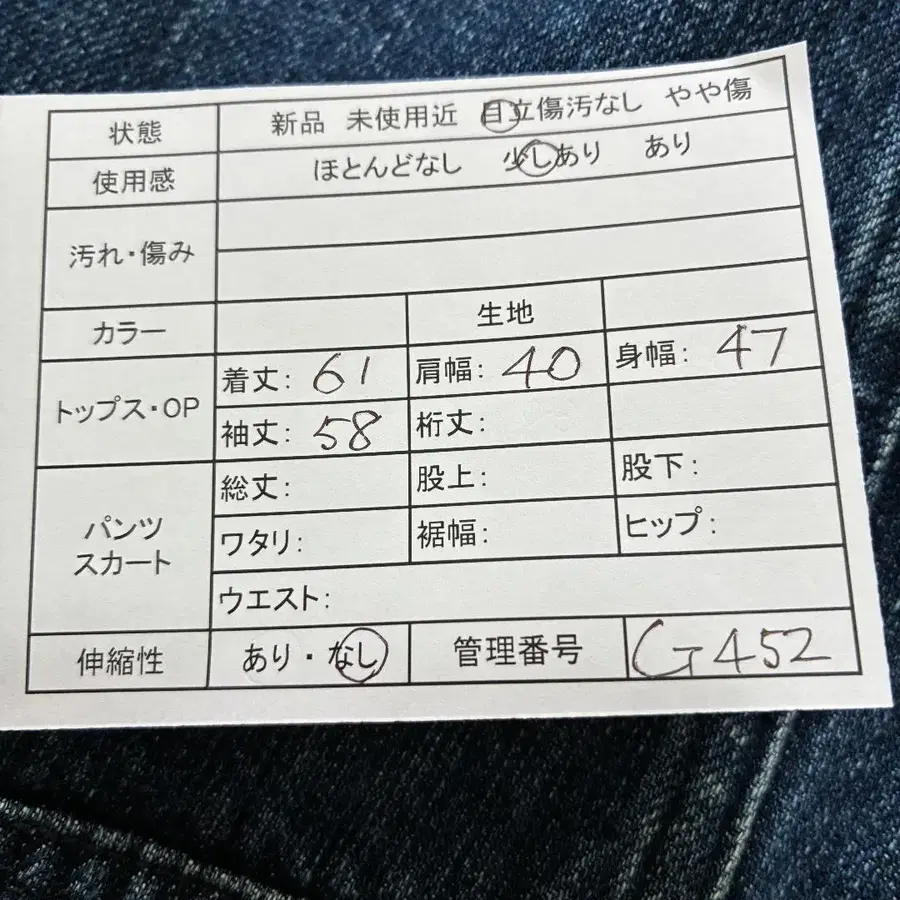 状態 新品 未使用近 目立傷汚なし やや傷
使用感 ほとんどなし 少しあり あり
汚れ・傷み
カラー 生地
トップス・OP 着丈: 61 肩幅: 40 身幅: 47
袖丈: 58 裄丈:
パンツ スカート 総丈: 股上: 股下:
ワタリ: 裾幅: ヒップ:
ウエスト:
伸縮性 あり・なし 管理番号 G452